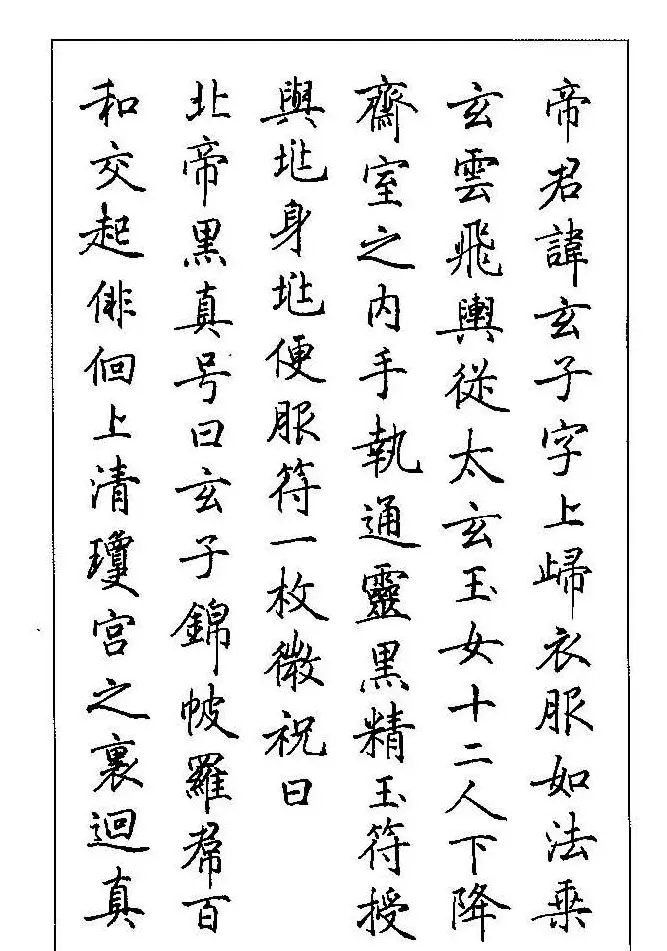 帝君諱玄子字上歸衣服如法乗
玄雲飛輿從太玄玉女十二人下降
齋室之内手執通靈黒精玉符授
與兆身兆便服符一枚微祝曰
北帝黒真号曰玄子錦帔羅帬百
和交起俳佪上清瓊宫之裏迴真